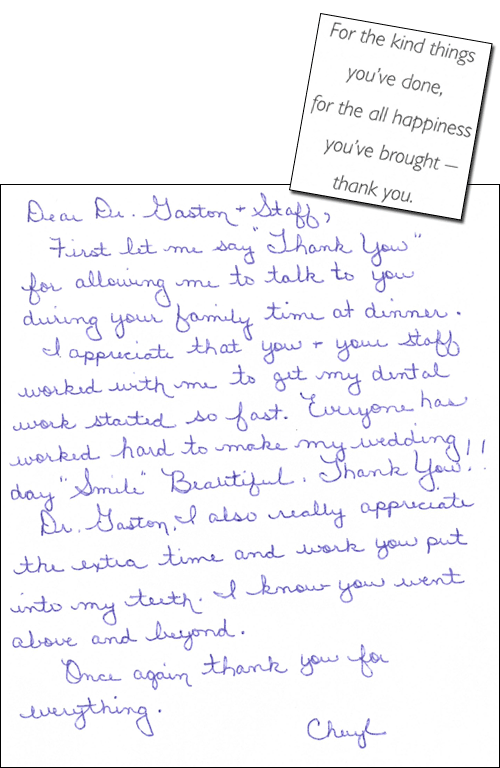 For the kind things
you've done,
for the all happiness
you've brought —
thank you.
Dear Dr. Gaston + Staff,
First let me say "Thank You"
for allowing me to talk to you
during your family time at dinner.
I appreciate that you + your staff
worked with me to get my dental
work started so fast. Everyone has
worked hard to make my wedding
day "Smile" Beautiful. Thank You!!
Dr. Gaston, I also really appreciate
the extra time and work you put
into my teeth. I know you went
above and beyond.
Once again thank you for
everything.
Cheryl